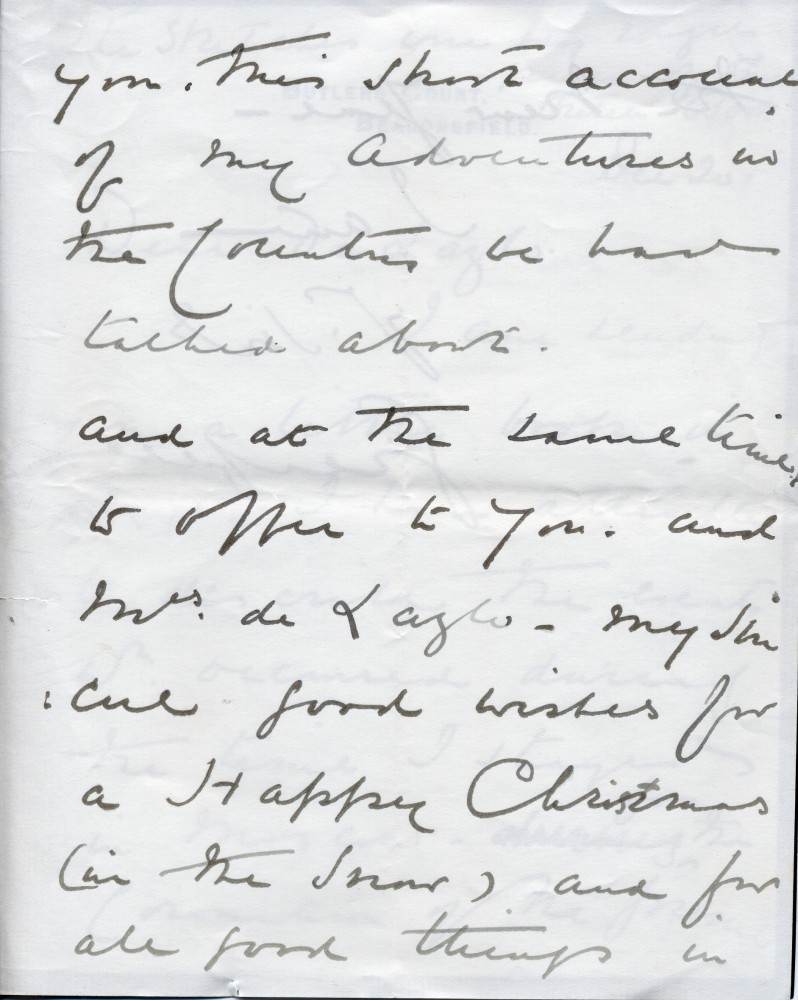 you. this short account
of my Adventures in
the Countries we had
talked about.
and at the same time,
to offer to you. and
Mrs. de Lazlo - my Sin
:cere good wishes for
a Happy Christmas
(in the Snow) and for
all good things in